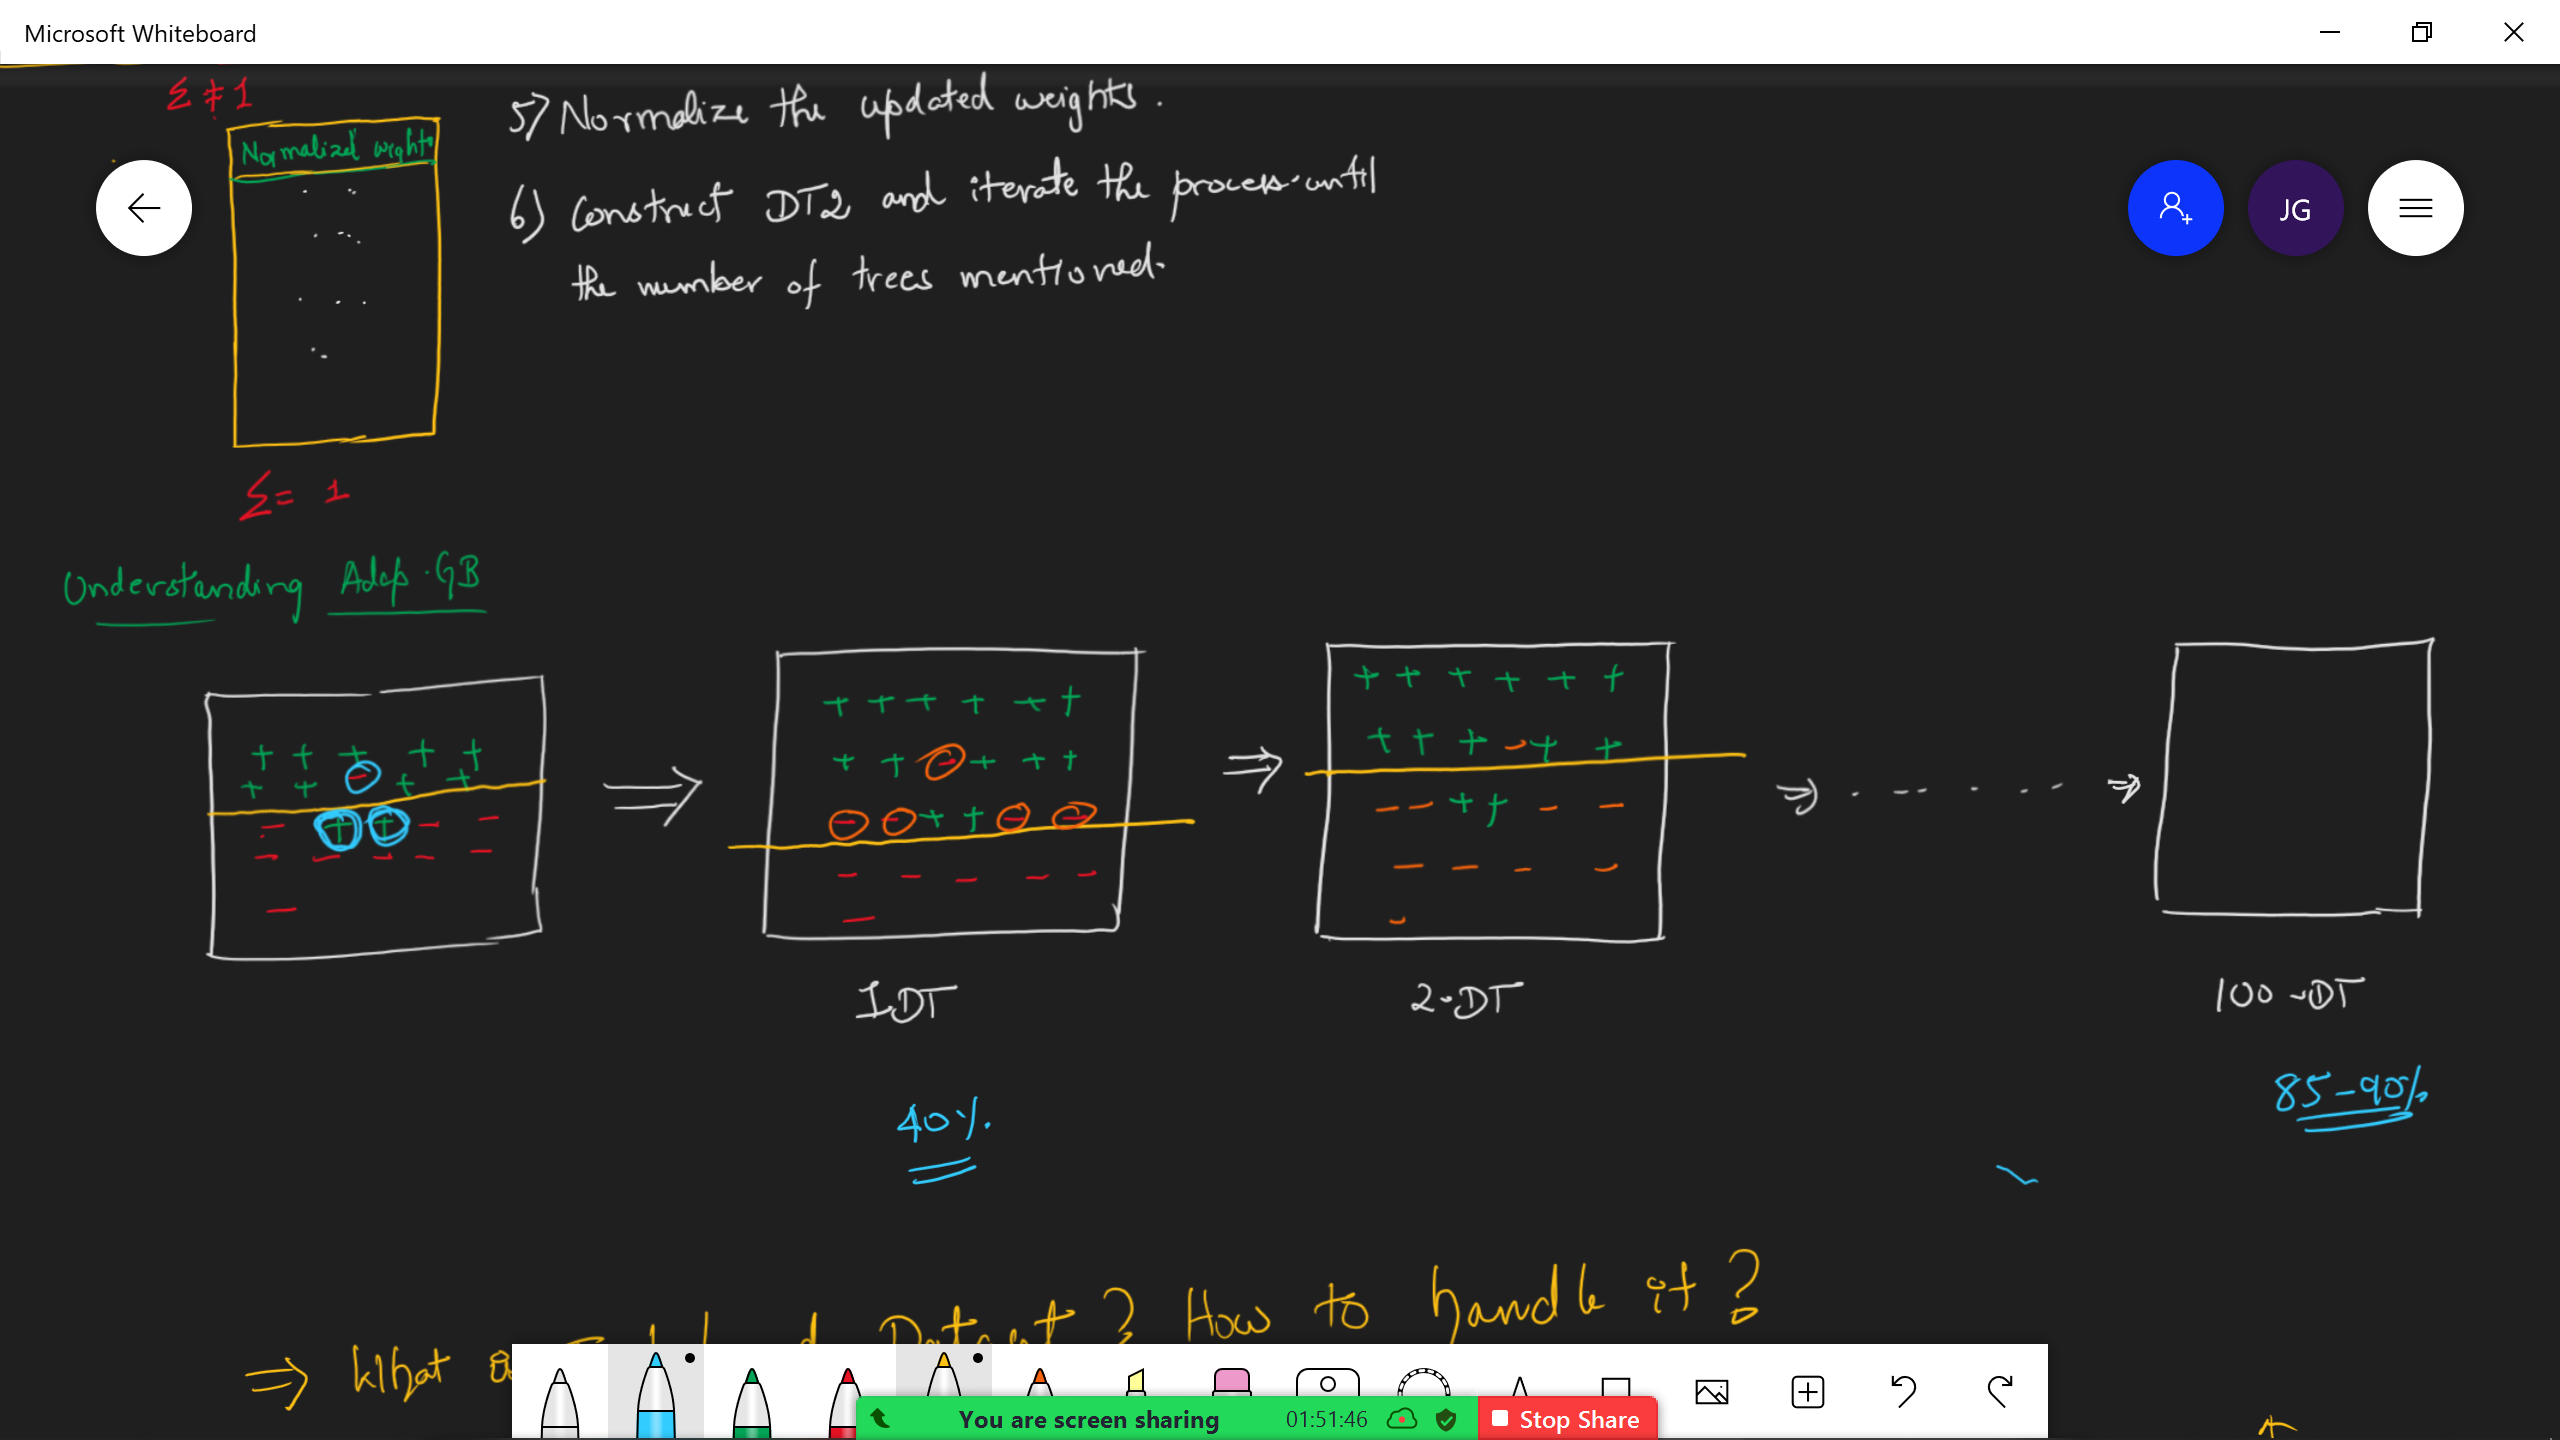 Microsoft Whiteboard
Σ ≠ 1
5) Normalize the updated weights.
Normalized wights
6) Construct DT2 and iterate the process until
the number of trees mentioned.
JG
Σ = 1
Understanding Adap. GB
+ + + + +
+ + - + +
- + + - -
- - - - -
-
+ + + + + +
+ + - + + +
- - + + - -
- - - - -
-
+ + + + + +
+ + + - + +
- - + + - -
- - - -
-
1.DT
2-DT
100-DT
40%.
85-90%
? How to handle it?
⇒ What
You are screen sharing 01:51:46 Stop Share